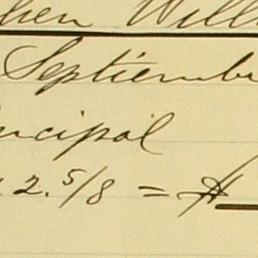 hen Will
Septiembr
ncipal
2. 5/8 = A